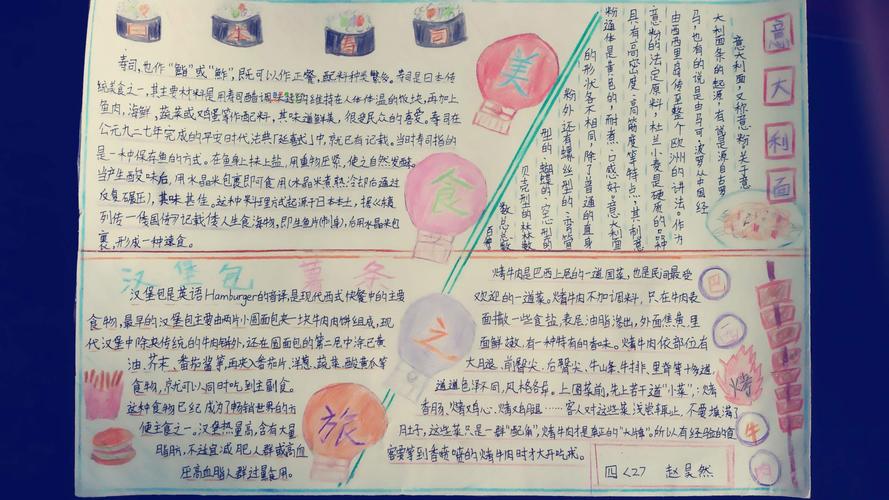 日本寿司
寿司,也作“鮨”或“鲊”,既可以作正餐,配料种类繁多。寿司是日本传
统美食之一,其主要材料是用寿司醋调味过的维持在人体体温的饭块,再加上
鱼肉,海鲜,蔬菜或鸡蛋等作配料,其味道鲜美,很受民众的喜爱。寿司在
公元九二七年完成的平安时代法典「延喜式」中,就已有记载。当时寿司指的
是一种保存鱼的方式。在鱼身上抹上盐,用重物压紧,使之自然发酵。
当产生酸味后,用水晶米包裹即可食用(水晶米煮熟冷却后通过
反复碾压),其味甚佳。这种菜料理方式起源于日本本土,
列传一倭国传》记载(倭人生食海物,即生鱼片(刺身),后用水晶米包
裹,形成一种速食。
美
食
之
旅
意大利面
意大利面,又称意粉。关于意
大利面条的起源,有说是源自古罗
马,也有的说是由马可·波罗从中国经
由西西里岛传至整个欧洲的讲法。作为
意粉的法定原料,杜兰小麦是最硬质的品种
具有高密度、高筋度等特点,其制意
粉通体是黄色的,耐煮、口感好。意大利面
的形状各不相同,除了普通的直身
粉外还有螺丝型的、弯管
型的、蝴蝶的、空心型的
贝壳型的林林
数总总数
百种
汉堡包 薯条
汉堡包是英语Hamburger的音译,是现代西式快餐中的主要
食物,最早的汉堡包主要由两片小圆面包夹一块牛肉肉饼组成,现
代汉堡中除夹传统的牛肉饼外,还在圆面包的第二层中涂已黄
油、芥末、番茄酱等,再夹入番茄片、洋葱、蔬菜、酸黄瓜等
食物,就可以同时吃到主副食。
这种食物已经成为了畅销世界的方
便主食之一。汉堡热量高,含有大量
脂肪,不过宜减肥人群或高血
压高血脂人群过量食用。
烤牛肉是巴西上层的一道国菜,也是民间最受
欢迎的一道菜。烤牛肉不加调料,只在牛肉表
面撒一些食盐,表层油脂渗出,外面焦黄,里
面鲜嫩,有一种特有的香味。烤牛肉依部位有
大月退、前臀尖、后臀尖、牛山条、牛排、里脊等十多道,
道道色泽不同,风格各异。上国菜前,先上若干道“小菜”:烤
香肠、烤鸡心、烤鸡月退……客人对这些菜浅尝辄止,不要填满了
肚子,这些菜只是一群“配角”,烤牛肉才是真正的“大牌”。所以有经验的食
客要等到香喷喷的烤牛肉时才大开吃戒。
巴西烤牛肉
四<27 赵昊然